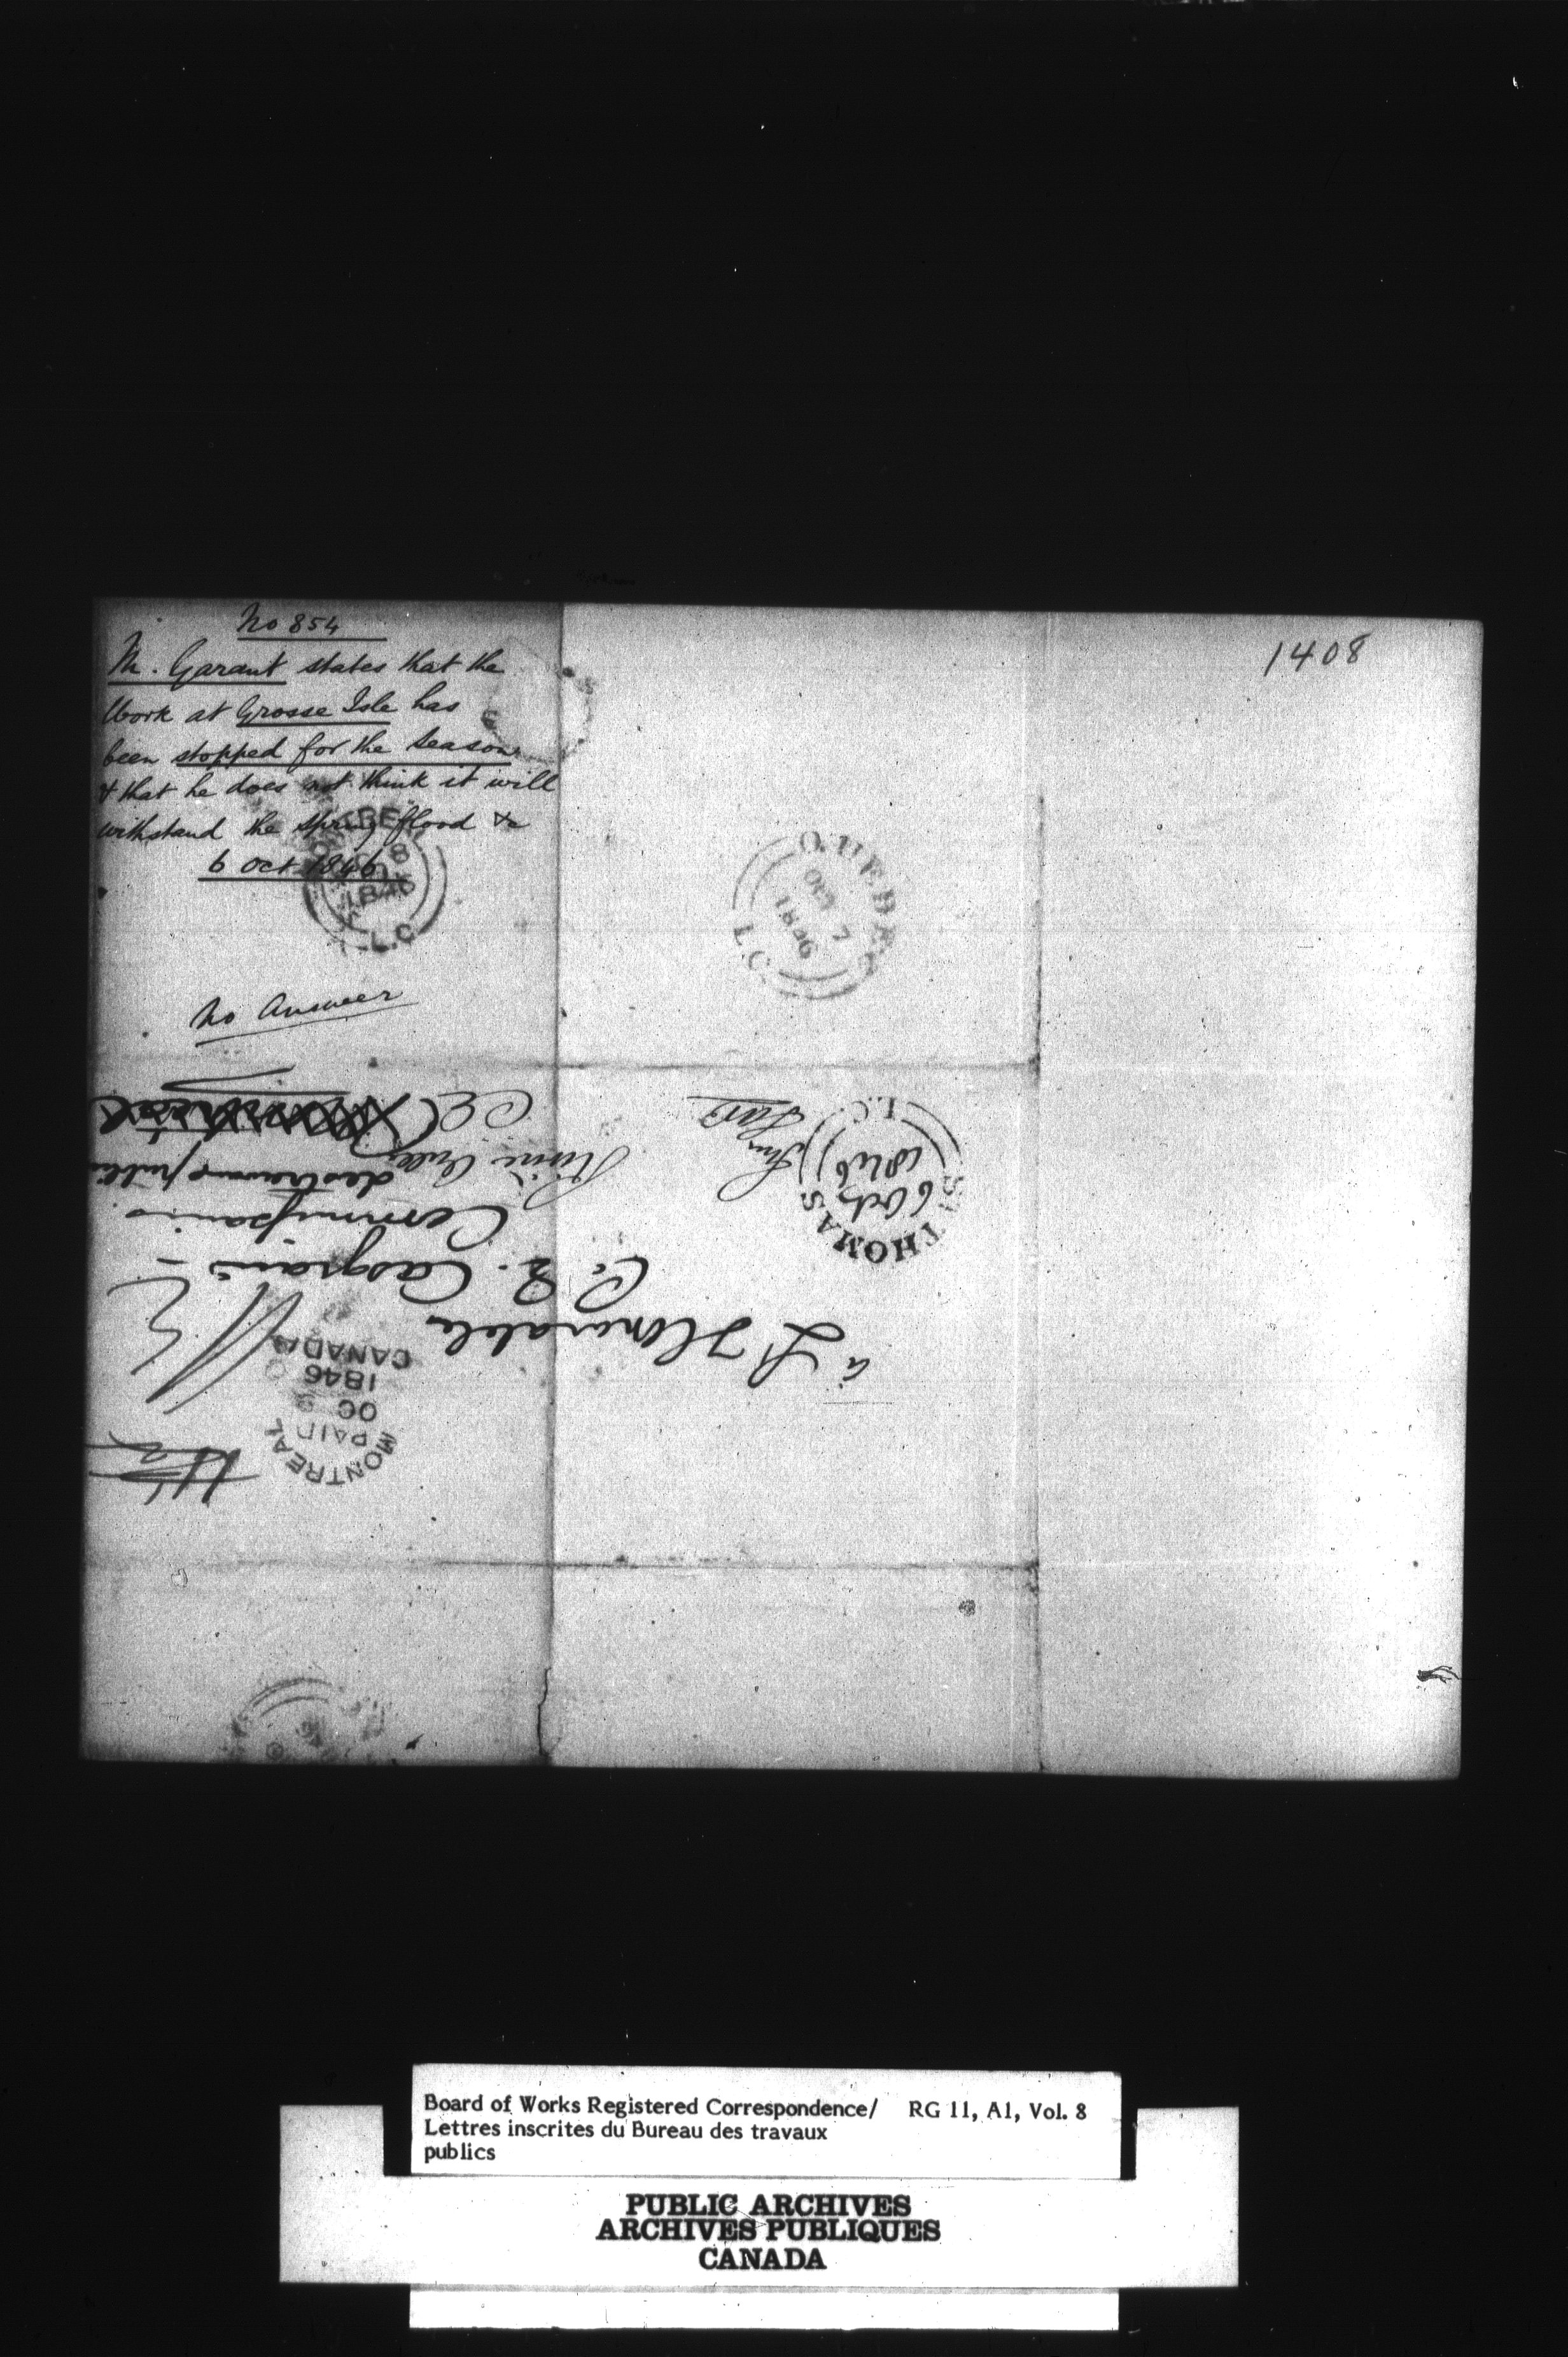 No 854
M. Garant states that the
Work at Grosse Isle has
been stopped for the Season
& that he does not think it will
withstand the spring flood &c
6 Oct 1846
No Answer
1408
QUEBEC
OC 8
1846
L.C
QUEBEC
OCT 7
1846
L.C
à L'Honorable
C. E. Casgrain
Commissaire
des travaux public
ST THOMAS
6 Oct
1846
L.C.
MONTREAL
PAID
OC 9
1846
CANADA
Board of Works Registered Correspondence/ RG 11, A1, Vol. 8
Lettres inscrites du Bureau des travaux
publics
PUBLIC ARCHIVES
ARCHIVES PUBLIQUES
CANADA